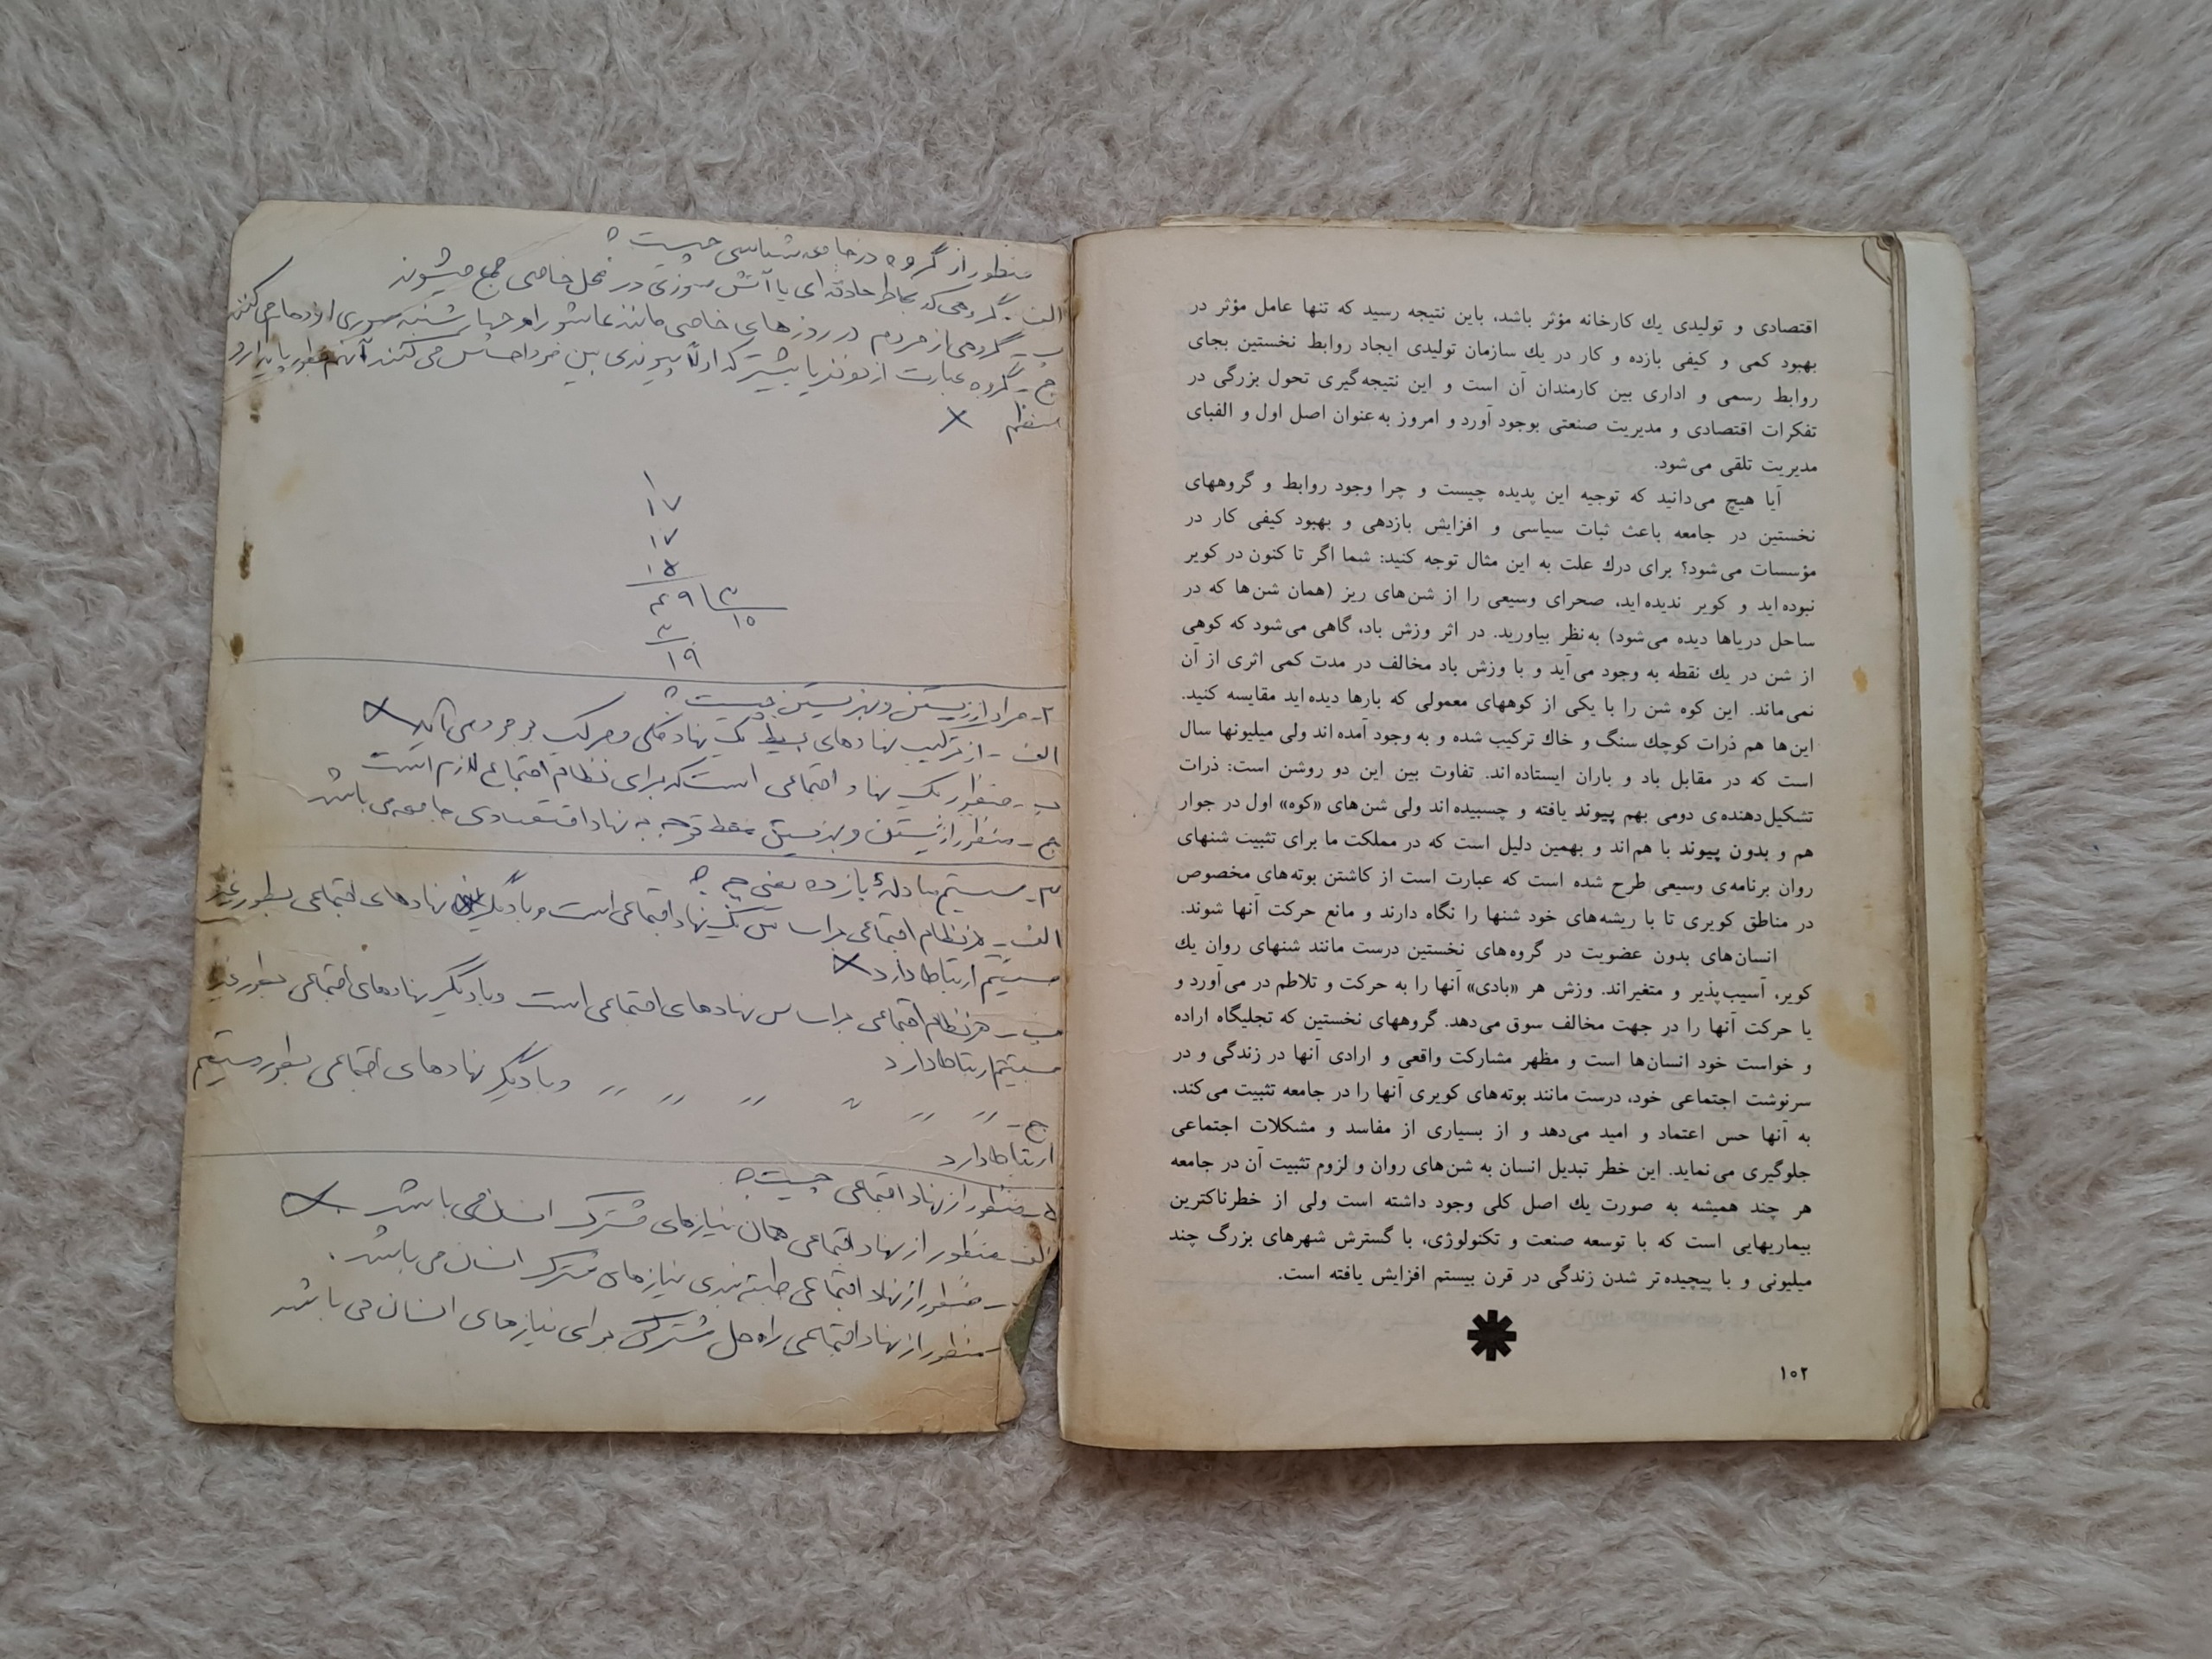 اقتصادی و تولیدی یك كارخانه مؤثر باشد، باین نتیجه رسید كه تنها عامل مؤثر در
بهبود كمی و كیفی بازده و كار در یك سازمان تولیدی ایجاد روابط نخستین بجای
روابط رسمی و اداری بین كارمندان آن است و این نتیجه‌گیری تحول بزرگی در
تفكرات اقتصادی و مدیریت صنعتی بوجود آورد و امروز به‌عنوان اصل اول و الفبای
مدیریت تلقی می‌شود.
آیا هیچ می‌دانید كه توجیه این پدیده چیست و چرا وجود روابط و گروههای
نخستین در جامعه باعث ثبات سیاسی و افزایش بازدهی و بهبود كیفی كار در
مؤسسات می‌شود؟ برای درك علت به این مثال توجه كنید: شما اگر تا كنون در كویر
نبوده‌اید و كویر ندیده‌اید، صحرای وسیعی را از شن‌های ریز (همان شن‌ها كه در
ساحل دریاها دیده می‌شود) به‌نظر بیاورید. در اثر وزش باد، گاهی می‌شود كه كوهی
از شن در یك نقطه به وجود می‌آید و با وزش باد مخالف در مدت كمی اثری از آن
نمی‌ماند. این كوه شن را با یكی از كوههای معمولی كه بارها دیده‌اید مقایسه كنید.
این‌ها هم ذرات كوچك سنگ و خاك تركیب شده و به وجود آمده‌اند ولی میلیونها سال
است كه در مقابل باد و باران ایستاده‌اند. تفاوت بین این دو روشن است: ذرات
تشكیل‌دهنده‌ی دومی بهم پیوند یافته و چسبیده‌اند ولی شن‌های «كوه» اول در جوار
هم و بدون پیوند با هم‌اند و بهمین دلیل است كه در مملكت ما برای تثبیت شنهای
روان برنامه‌ی وسیعی طرح شده است كه عبارت است از كاشتن بوته‌های مخصوص
در مناطق كویری تا با ریشه‌های خود شنها را نگاه دارند و مانع حركت آنها شوند.
انسان‌های بدون عضویت در گروه‌های نخستین درست مانند شنهای روان یك
كویر، آسیب‌پذیر و متغیراند. وزش هر «بادی» آنها را به حركت و تلاطم در می‌آورد و
یا حركت آنها را در جهت مخالف سوق می‌دهد. گروههای نخستین كه تجلیگاه اراده
و خواست خود انسان‌ها است و مظهر مشاركت واقعی و ارادی آنها در زندگی و در
سرنوشت اجتماعی خود، درست مانند بوته‌های كویری آنها را در جامعه تثبیت می‌كند،
به آنها حس اعتماد و امید می‌دهد و از بسیاری از مفاسد و مشكلات اجتماعی
جلوگیری می‌نماید. این خطر تبدیل انسان به شن‌های روان و لزوم تثبیت آن در جامعه
هر چند همیشه به صورت یك اصل كلی وجود داشته است ولی از خطرناكترین
بیماریهایی است كه با توسعه صنعت و تكنولوژی، با گسترش شهرهای بزرگ چند
میلیونی و با پیچیده‌تر شدن زندگی در قرن بیستم افزایش یافته است.
۱۰۲
منظور از گروه در جامعه شناسی چیست ؟
الف - گروهی که بخاطر حادثه ای یا آتش سوزی در محل خاصی جمع میشوند
ب - گروهی از مردم در روزهای خاصی مانند عاشورا و چهارشنبه سوری ازدحام می کنند
ج - گروه عبارت از دو نفر یا بیشتر که اولاً پیوندی بین خود احساس می کنند آنهم بطور پایدار و
منظم
۱
۱۷
۱۷
۱۵
۴۹ ۳
۳ ۱۵
۱۹
۲ - مراد از زیستن و بهزیستن چیست ؟
الف - از ترکیب نهادهای بسیط یک نهاد کلی و مرکب بوجود می آید
ب - منظور یک نهاد اجتماعی است که برای نظام اجتماع لازم است
ج - منظور از زیستن و بهزیستن فقط توجه به نهاد اقتصادی جامعه می باشد
۳ - سیستم مبادلهٔ بازده یعنی چه ؟
الف - هر نظام اجتماعی براساس یک نهاد اجتماعی است و با دیگر نهادهای اجتماعی بطور غیر
مستقیم ارتباط دارد
ب - هر نظام اجتماعی براساس نهادهای اجتماعی است و با دیگر نهادهای اجتماعی بطور غیر
مستقیم ارتباط دارد
ج - 〃 〃 〃 〃 〃 〃 و با دیگر نهادهای اجتماعی بطور مستقیم
ارتباط دارد
۵ - منظور از نهاد اجتماعی چیست ؟
الف - منظور از نهاد اجتماعی همان نیازهای مشترک انسان می باشد
- منظور از نهاد اجتماعی طبقه بندی نیازهای مشترک انسان می باشد .
- منظور از نهاد اجتماعی راه حل مشترکی برای نیازهای انسان می باشد